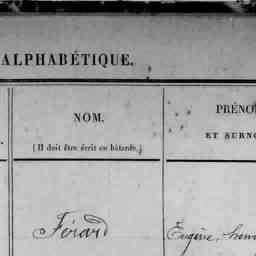 ALPHABÉTIQUE.
NOM.
(Il doit être écrit en bâtarde.)
PRÉNO
ET SURNO
Férard
Eugène, henri